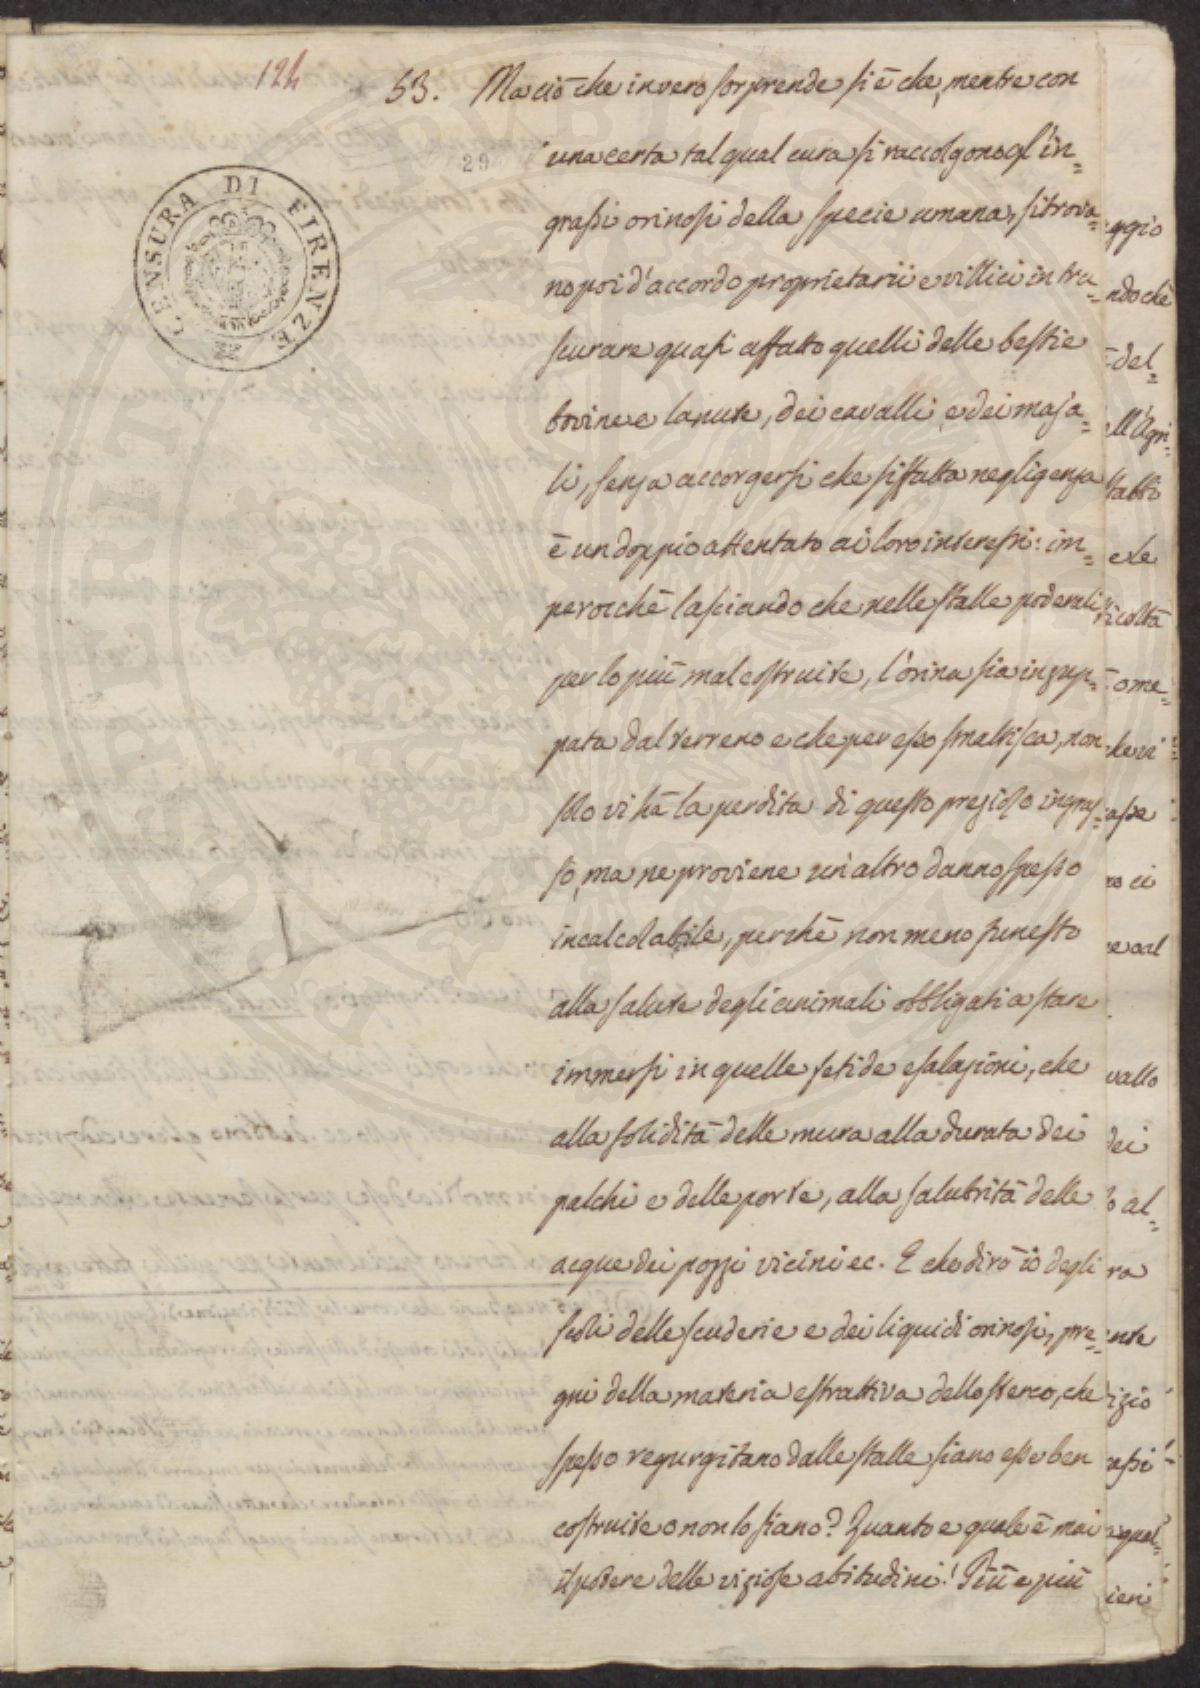 124
53. Ma ciò che in vero sorprende si è che, mentre con
29
una certa tal qual cura si raccolgono gl'in=
grassi orinosi della specie umana, si trova=
no poi d'accordo proprietarii e villici in tra=
scurare quasi affatto quelli delle bestie
bovine e lanute, dei cavalli e dei maja=
li, senza accorgersi che siffatta negligenza
è un doppio attentato ai loro interessi: im=
perocchè lasciando che nelle stalle poderali
per lo più mal costruite, l'orina sia inzup=
pata dal terreno e che per esso smaltisca, non
solo vi hà la perdita di questo prezioso ingras=
so, ma ne proviene un altro danno spesso
incalcolabile, perchè non meno funesto
alla salute degli animali obbligati a stare
immersi in quelle fetide esalazioni, che
alla solidità delle mura alla durata dei
palchi e delle porte, alla salubrità delle
acque dei pozzi vicini ec. E che dirò io degli
scoli delle scuderie e dei liquidi orinosi, pre=
gni della materia estrattiva dello sterco, che
spesso regurgitano dalle stalle siano esse ben
costruite o non lo siano? Quanto e quale è mai
il potere delle viziose abitudini! Più e più
CENSURA DI FIRENZE
eggio
ndo chè
del=
ell'Agri=
stabbi
e le
ricoltà
o me=
che vi
asse
no ci
e al
vallo
dei
o al=
ra
ente
izio
assi
qual=
ieri